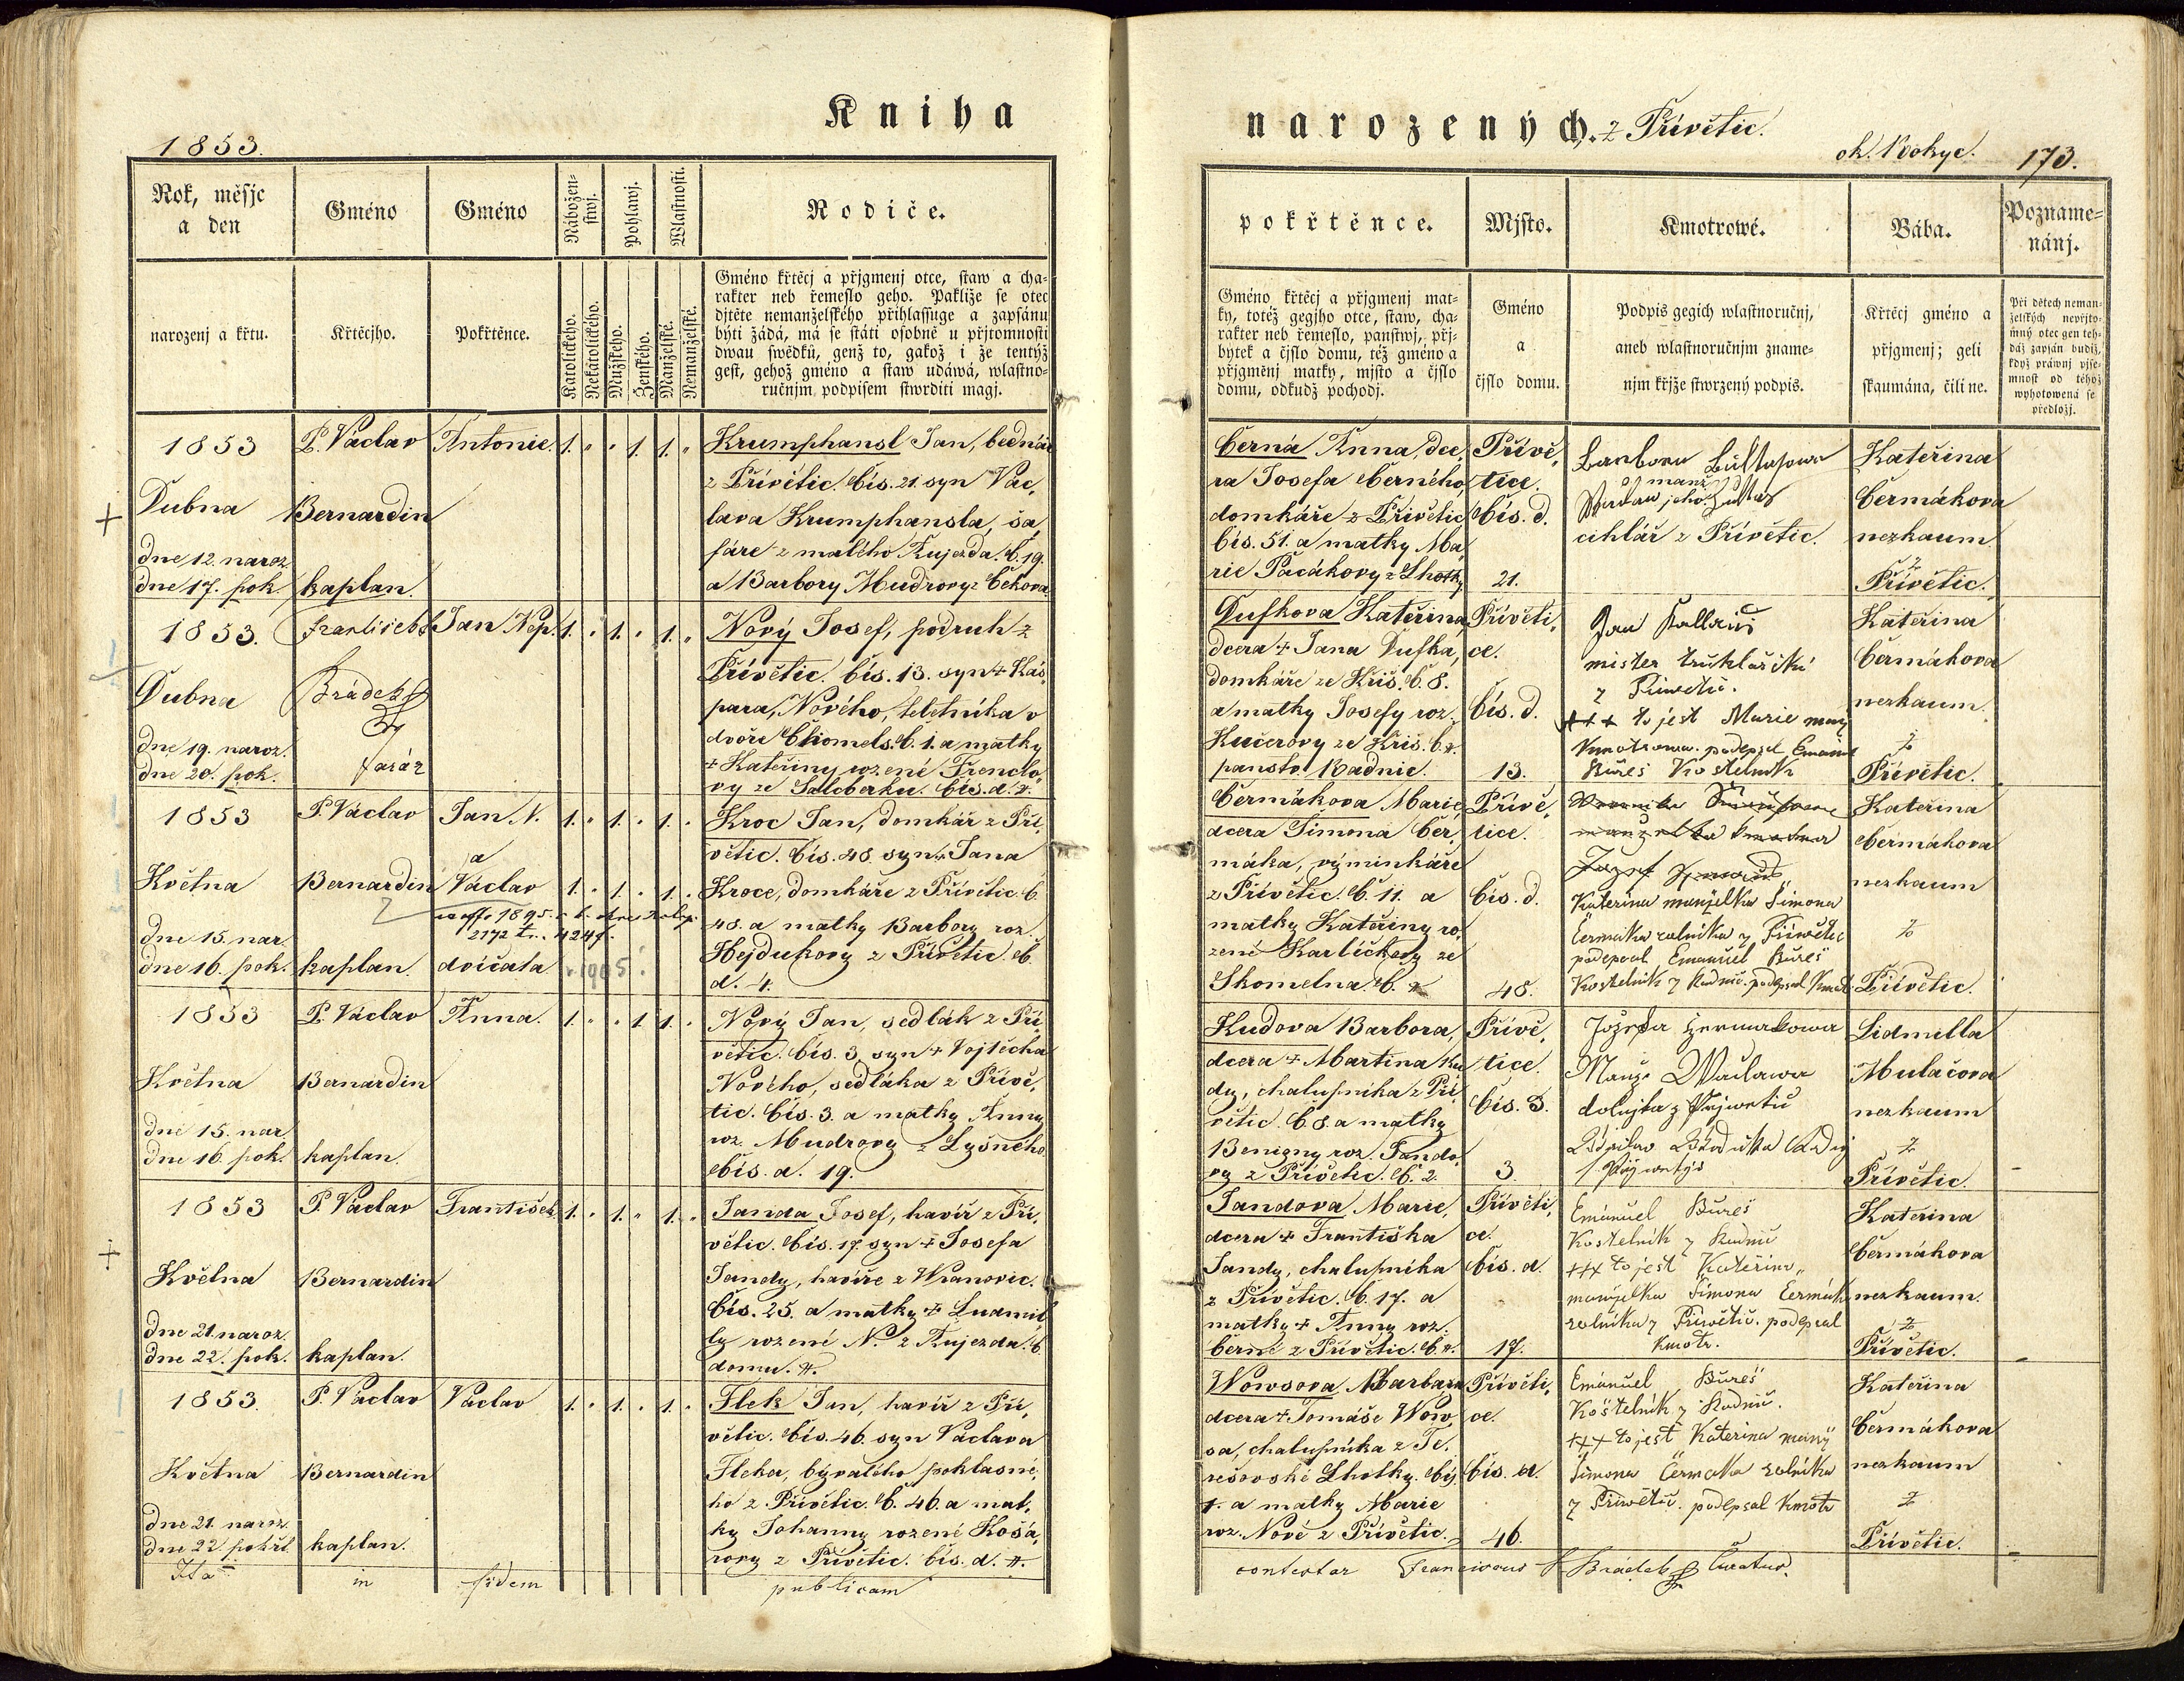 Kniha
1853.
Rok, měsjc
a den
Gméno
Gméno
Nábožen-
stwj.
Pohlawj.
Wlastnosti.
Rodiče.
narozenj a křtu.
Křtěcjho.
Pokřtěnce.
Katolického.
Nekatolického.
Mužského.
Ženského.
Manželské.
Nemanželské.
Gméno křtěcj a přjgmenj otce, staw a cha-
rakter neb řemeslo geho. Pakliže se otec
djtěte nemanželského přihlassuge a zapsánu
býti žádá, má se státi osobně u přjtomnosti
dwau swědků, genž to, gakož i že tentýž
gest, gehož gméno a staw udáwá, wlastno-
ručnjm podpisem stwrditi magj.
1853
Dubna
dne 12. naroz.
dne 17. pok.
P. Václav
Bernardin
kaplan.
Antonie.
1. " " 1. 1. "
Krumphansl Jan, bednář
z Přívětic. čís. 21. syn Vác,
lava Krumphansla, ša,
fáře z malého Aujezda. č. 19.
a Barbory Mudrovy z Čekova.
1853.
Dubna
dne 19. naroz.
dne 20. pok.
František
Brádek
farář
Jan Nep.
1. " 1. " 1. "
Nový Josef, podruh z
Přívětic. čís. 13. syn + Kaš,
para, Nového,
dvoře Chomels. č. 1. a matky
+ Kateřiny rozené
vy ze čís. d.
1853
Května
dne 15. nar.
dne 16. pok.
P. Václav
Bernardin
kaplan.
Jan N.
a
Václav
dvíčata
1. " 1. " 1. "
1. " 1. " 1. "
Kroc Jan, domkář z Pří,
větic. čís. 48. syn + Jana
Kroce, domkáře z Přívětic. č.
48. a matky Barbory roz.
Hejdukovy z Přívětic. č.
d. 4.
1853
Května
dne 15. nar.
dne 16. pok.
P. Václav
Bernardin
kaplan.
Anna.
1. " " 1. 1. "
Nový Jan, sedlák z Pří,
větic. čís. 3. syn + Vojtěcha
Nového, sedláka z Přívě,
tic. čís. 3. a matky Anny
roz. Mudrovy z Lyšného
čís. d. 19.
1853
Května
dne 21. naroz.
dne 22. pok.
P. Václav
Bernardin
kaplan.
František
1. " 1. " 1. "
Janda Josef, havíř z Pří,
větic. čís. 17. syn + Josefa
Jandy, havíře z Wranovic.
čís. 25. a matky + Ludmil,
ly rozené N. z Aujezda. č.
domu.
1853.
Května
dne 21. naroz.
dne 22. pokřt.
P. Václav
Bernardin
kaplan.
Václav
1. " 1. " 1. "
Flek Jan, havíř z Pří,
větic. čís. 46. syn Václava
Fleka, bývalého poklasné,
ho z Přívětic. č. 46. a mat,
ky Johanny rozené Košá,
rovy z Přívětic. čís. d.
Ita in fidem publicam
narozených. z Přívětic.
ok. Rokyc. 173.
pokřtěnce.
Mjsto.
Kmotrowé.
Bába.
Pozname-
nánj.
Gméno křtěcj a přjgmenj mat-
ky, totéž gegjho otce, staw, cha-
rakter neb řemeslo, panstwj, přj-
bytek a čjslo domu, též gméno a
přjgmenj matky, mjsto a čjslo
domu, odkudž pocházj.
Gméno
a
čjslo domu.
Podpis gegich wlastnoručnj,
aneb wlastnoručnjm zname-
njm křjže stwrzený podpis.
Křtěcj gméno a
přjgmenj; geli
skaumána, čili ne.
Při dětech neman-
želských nepřjto-
mný otec gen teh-
dáž zapsán budiž,
když práwnj pjse-
mnost od téhož
wyhotowená se
předložj.
Černá Anna, dce,
ra Josefa Černého,
domkáře z Přívětic
čís. 51. a matky Ma,
rie Pacákovy z Lhotky
Přívě,
tice.
čís. d.
21.
Barbora
manž
cihlář z Přívětic.
Kateřina
Čermákova
nezkaum.
z
Přívětic.
Duškova Kateřina,
dcera + Jana Duška,
domkáře ze Kříš. č. 8.
a matky Josefy roz.
Kučerovy ze Kříš. č.
panstv. Radnic.
Příveti,
ce.
čís. d.
13.
Jan
mister truhlařiki
z Přiwětic.
+++ to jest Marie manž
Kmotrowa. podepsal Emanuel
Bureš Kostelnik
Kateřina
Čermákova
nezkaum.
z
Přívětic.
Čermákova Marie,
dcera Šimona Čer,
máka, výminkáře
z Přívětic. č. 11. a
matky Kateřiny ro,
zené Karlíčkovy ze
Skomelna. č.
Přívě,
tice.
čís. d.
48.
Kateřina manželka Šimona
Čermaka rolníka z Přiwětic
podepsal Emanuel Bureš
Kostelník z Radnic. podepsal Kmotr
Kateřina
Čermákova
nezkaum
z
Přívětic.
Kudova Barbora,
dcera + Martina Ku
dy, chalupníka z Pří,
větic. č. 8. a matky
Benigny roz. Jando,
vy z Přívětic. č. 2.
Přívě,
tice.
čís. d.
3.
Manž. Wacława
z
Lidmilla
Mulačova
nezkaum
z
Přívětic.
Jandova Marie,
dcera + Františka
Jandy, chalupníka
z Přívětic. č. 17. a
matky + Anny roz.
Černé z Přívětic. č.
Příveti,
ce.
čís. d.
17.
Emanuel Bureš
Kostelník z Radnic
+++ to jest Kateřina
manželka Šimona Čermáka
rolníka z Přiwětic. podepsal
Kmotr.
Kateřina
Čermákova
nezkaum.
z
Přívětic.
Wowsova Barbara
dcera + Tomáše Wow,
sa, chalupníka z Te,
rešovské Lhotky. čís.
1. a matky Marie
roz. Nové z Přívětic.
Příveti,
ce.
čís. d.
46.
Emanuel Bureš
Kostelník z Radnic.
+++ to jest Kateřina manž
Šimona Čermaka rolníka
z Přiwětic. podepsal Kmotr
Kateřina
Čermákova
nezkaum
z
Přívětic.
contestor Franciscus Brádek Curatus.